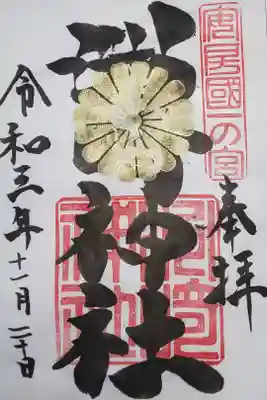 安房國一の宮
奉拝
神社
令和三年十一月二十日